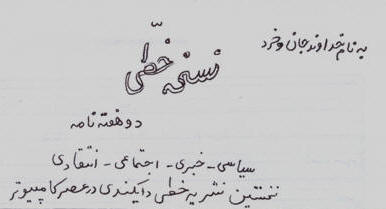 به نام خداوند جان و خرد
نسخه خطّی
دو هفته نامه
سیاسی - خبری - اجتماعی - انتقادی
نخستین نشریه خطی دایکندی در عصر کامپیوتر